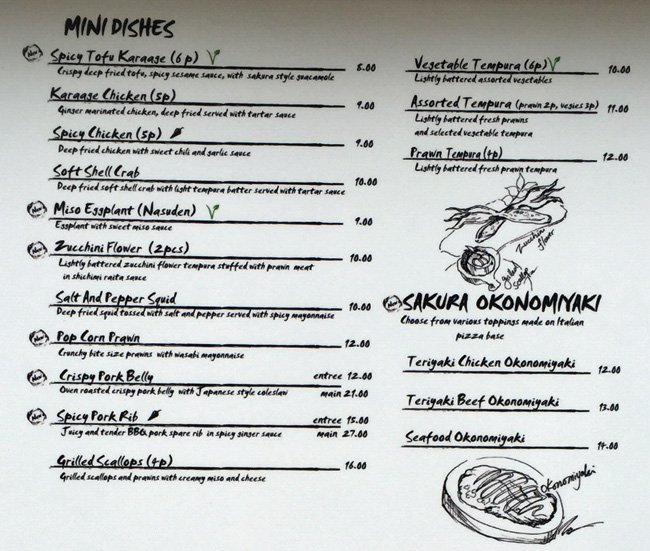 MINI DISHES
New
Spicy Tofu Karaage (6p) V 8.00
Crispy deep fried tofu, spicy sesame sauce, with sakura style guacamole
Karaage Chicken (5p) 9.00
Ginger marinated chicken, deep fried served with tartar sauce
Spicy Chicken (5p) 9.00
Deep fried chicken with sweet chili and garlic sauce
Soft Shell Crab 10.00
Deep fried soft shell crab with light tempura batter served with tartar sauce
New
Miso Eggplant (Nasuden) V 9.00
Eggplant with sweet miso sauce
New
Zucchini Flower (2pcs) 10.00
Lightly battered zucchini flower tempura stuffed with prawn meat
in shichimi raita sauce
Salt And Pepper Squid 10.00
Deep fried squid tossed with salt and pepper served with spicy mayonnaise
New
Pop Corn Prawn 12.00
Crunchy bite size prawns with wasabi mayonnaise
New
Crispy Pork Belly entree 12.00
Oven roasted crispy pork belly with Japanese style coleslaw main 21.00
New
Spicy Pork Rib entree 15.00
Juicy and tender BBQ pork spare rib in spicy ginger sauce main 27.00
Grilled Scallops (4p) 16.00
Grilled scallops and prawns with creamy miso and cheese
Vegetable Tempura (6p) V 10.00
Lightly battered assorted vegetables
Assorted Tempura (prawn 2p, vegies 3p) 11.00
Lightly battered fresh prawns
and selected vegetable tempura
Prawn Tempura (4p) 12.00
Lightly battered fresh prawn tempura
Zucchini
flower
New
SAKURA OKONOMIYAKI
Choose from various toppings made on Italian
pizza base
Teriyaki Chicken Okonomiyaki 12.00
Teriyaki Beef Okonomiyaki 13.00
Seafood Okonomiyaki 14.00
Okonomiyaki